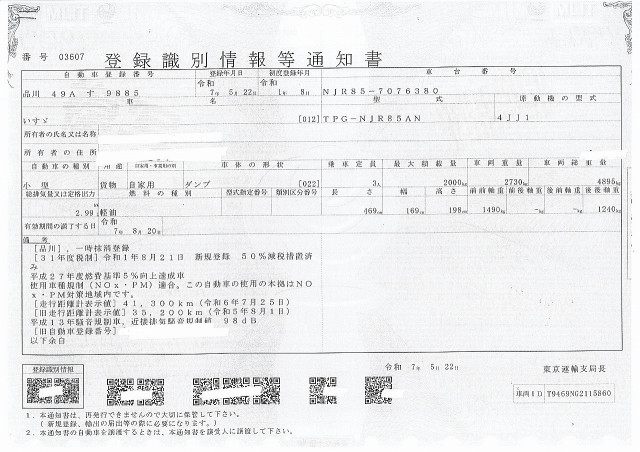 番号 03607 登録識別情報等通知書
自動車登録番号 登録年月日 初度登録年月 車台番号
品川 49A す 9885 令和 7年 5月 22日 令和 1年 8月 NJR85-7076380
車名 型式 原動機の型式
いすゞ [012] TPG-NJR85AN 4JJ1
所有者の氏名又は名称
所有者の住所
自動車の種別 用途 自家用・事業用の別 車体の形状 乗車定員 最大積載量 車両重量 車両総重量
小型 貨物 自家用 ダンプ [022] 3人 2000kg 2730kg 4895kg
総排気量又は定格出力 燃料の種別 型式指定番号 類別区分番号 長さ 幅 高さ 前前軸重 前後軸重 後前軸重 後後軸重
2.99 軽油 469cm 169cm 198cm 1490kg -kg -kg 1240kg
有効期間の満了する日 令和 7年 8月 20日
備考
[品川],一時抹消登録
[31年度税制]令和1年8月21日 新規登録 50%減税措置済
み
平成27年度燃費基準5%向上達成車
使用車種規制(NOx・PM)適合。この自動車の使用の本拠はNO
x・PM対策地域内です。
[走行距離計表示値]41,300km(令和6年7月25日)
[旧走行距離計表示値]35,200km(令和5年8月1日)
平成13年騒音規制車、近接排気騒音規制値 98dB
[旧自動車登録番号]
以下余白
令和 7年 5月 22日 東京運輸支局長
登録識別情報
車両ID T9469NG2115860
1.本通知書は、再発行できませんので大切に保管して下さい。
(新規登録、輸出の届出等の際に必要になります。)
2.本通知書の自動車を譲渡するときは、本通知書を譲受人に譲渡して下さい。